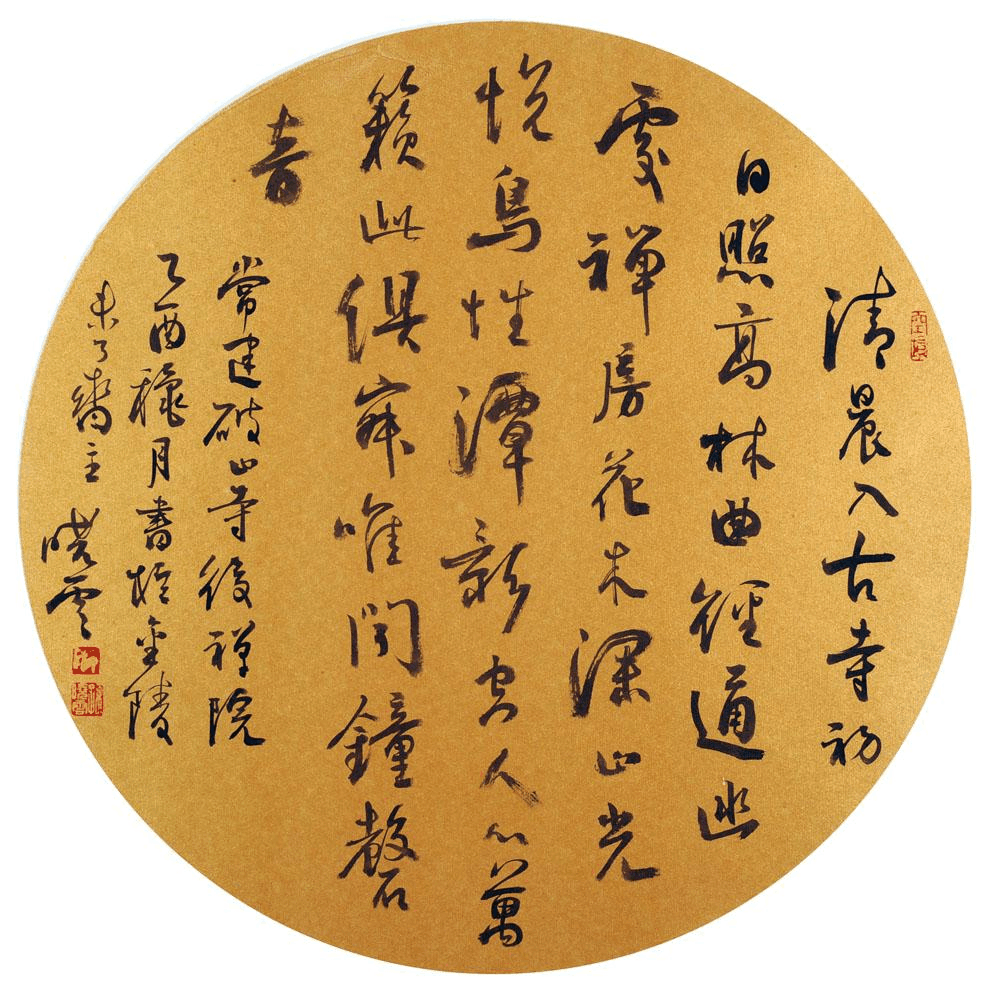 清晨入古寺初
日照高林曲徑通幽
處禪房花木深山光
悅鳥性潭影空人心萬
籟此俱寂唯聞鐘磬
音
常建破山寺後禪院
乙酉穐月書於金陵
未了齋主曉雲